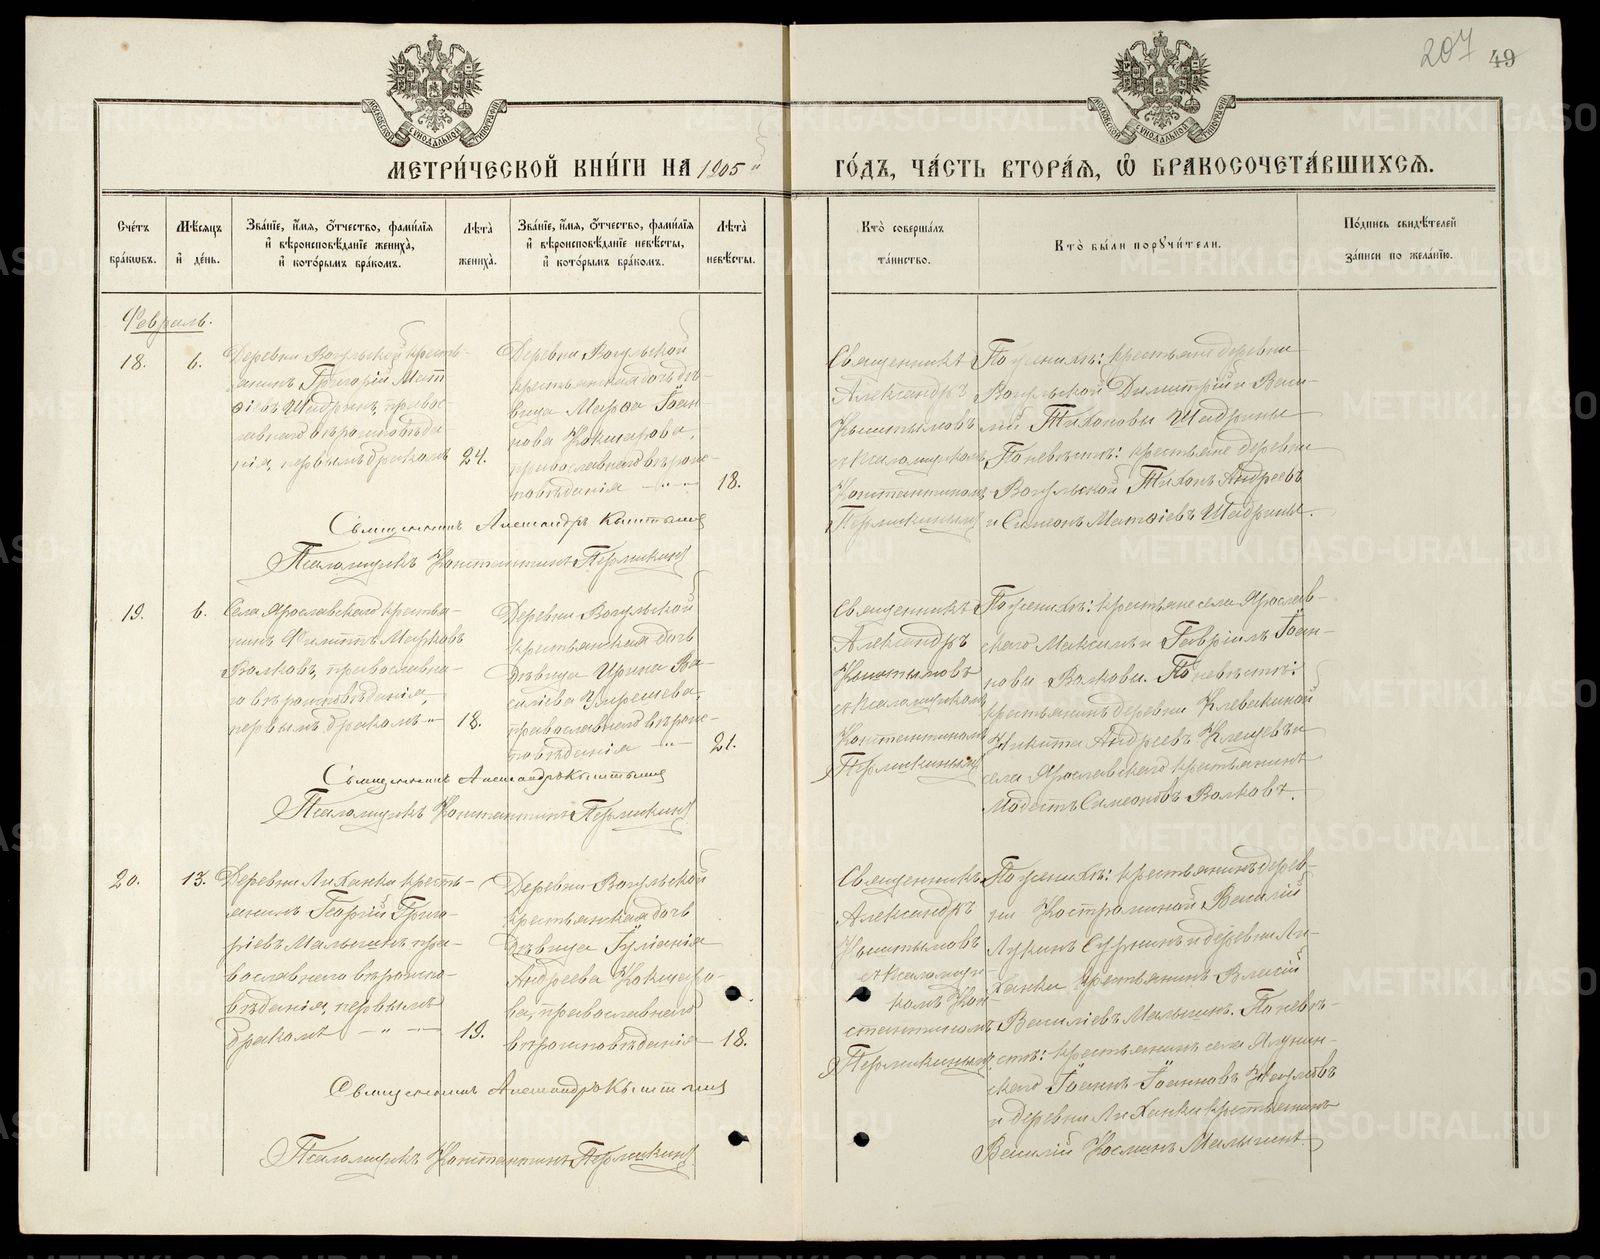 207 49
МОСКОВСКОЙ СѴНОДАЛЬНОЙ ТИПОГРАФІИ
МОСКОВСКОЙ СѴНОДАЛЬНОЙ ТИПОГРАФІИ
МЕТРИ́ЧЕСКОЙ КНИ́ГИ НА 1905
ГО́ДЪ, ЧА́СТЬ ВТОРА́Я, Ѿ БРАКОСОЧЕТА́ВШИХСЯ.
Сче́тъ бра́кѡвъ.
Мѣ́сяцъ и҆ де́нь.
Зва́нїе, и҆́мя, о҆́тчество, фами́лїя и҆ вѣроисповѣ́данїе жениха̀, и҆ кото́рымъ бра́комъ.
Лѣта̀ жениха̀.
Зва́нїе, и҆́мя, о҆́тчество, фами́лїя и҆ вѣроисповѣ́данїе невѣ́сты, и҆ кото́рымъ бра́комъ.
Лѣта̀ невѣ́сты.
Кто̀ соверша́лъ та́инство.
Кто̀ бы́ли порꙋчи́тели.
По́дпись свидѣ́телей за́писи по жела́нїю.
Февраль.
18.
6.
Деревни Вогульской кресть-
янинъ Григорій Мат
ѳіевъ Шадринъ, правос-
лавнаго вѣроисповѣда
нія, первымъ бракомъ
24.
Деревни Вогульской
крестьянская дочь дѣ-
вица Марѳа Іоан-
нова Кокшарова,
православнаго вѣроис-
повѣданія — " —
18.
Священникъ
Александръ
Кыштымовъ
съ псаломщикомъ
Константиномъ
Пермикинымъ
По женихѣ: крестьяне деревни
Вогульской Димитрій и Васи-
лій Тихоновы Шадрины
По невѣстѣ: крестьяне деревни
Вогульской Тихонъ Андреевъ
и Симеонъ Матѳіевъ Шадрины.
Священникъ Александръ Кыштымовъ
Псаломщикъ Константинъ Пермикинъ
19.
6.
Села Ярославскаго крестья-
нинъ Филиппъ Марковъ
Волковъ, православна-
го вѣроисповѣданія,
первымъ бракомъ "
18.
Деревни Вогульской
крестьянская дочь
дѣвица Ирина Ва-
силіева
православнаго вѣроис-
повѣданія — " —
21.
Священникъ
Александръ
Кыштымовъ
съ псаломщикомъ
Константиномъ
Пермикинымъ
По женихѣ: крестьяне села Ярослав-
скаго Максимъ и Гавріилъ Іоан-
новы Волковы. По невѣстѣ:
крестьянинъ деревни Клевакиной
Никита Андреевъ Клещевъ и
села Ярославскаго крестьянинъ
Модестъ Симеоновъ Волковъ.
Священникъ Александръ Кыштымовъ
Псаломщикъ Константинъ Пермикинъ
20.
13.
Деревни Лиханки кресть-
янинъ Георгій Григо-
ріевъ Малыгинъ, пра-
вославнаго вѣроиспо-
вѣданія, первымъ
бракомъ — " —
19.
Деревни Вогульской
крестьянская дочь
дѣвица Іуліанія
Андреева Кокшаро-
ва, православнаго
вѣроисповѣданія
18.
Священникъ
Александръ
Кыштымовъ
съ псаломщи-
комъ Кон-
стантиномъ
Пермикинымъ
По женихѣ: крестьянинъ дерев-
ни Костроминой Василій
Лукинъ и деревни Ли-
ханки крестьянинъ
Василіевъ Малыгинъ. По невѣ-
стѣ: крестьянинъ села
скаго Іоаннъ Іоанновъ
и деревни Лиханки крестьянинъ
Василій Косминъ Малыгинъ
Священникъ Александръ Кыштымовъ
Псаломщикъ Константинъ Пермикинъ
METRIKI.GASO-URAL.RU